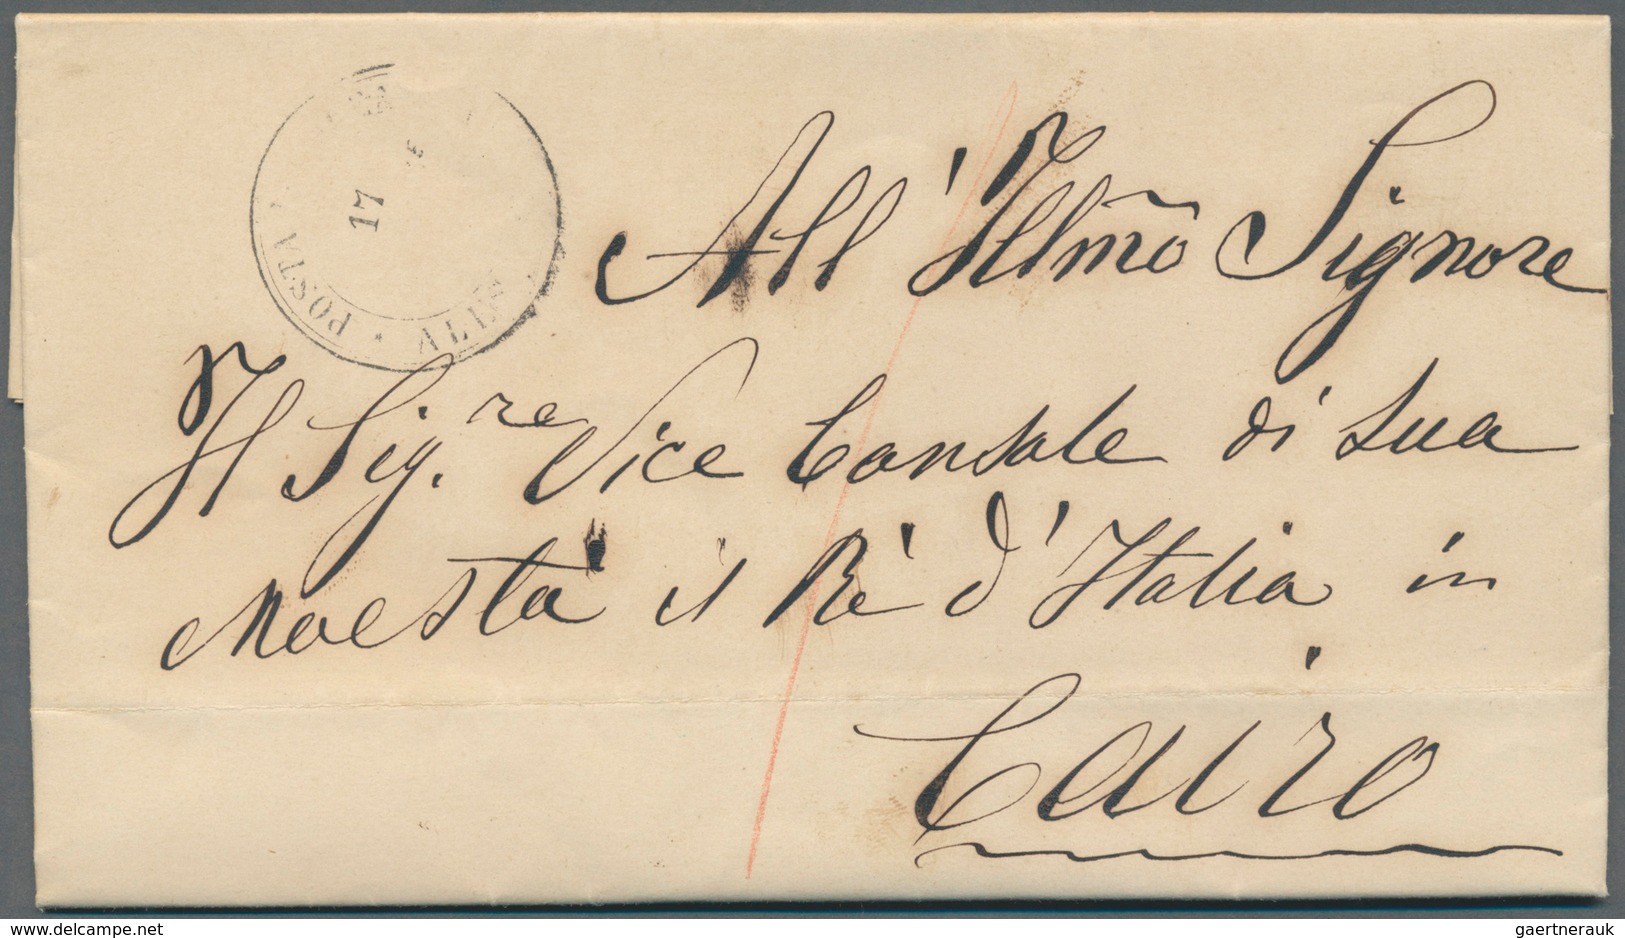 POSTA
17
All' Illmo Signore
Il Sig.re Vice Console di Sua
Maestà il Rè d'Italia in
Cairo
www.delcampe.net
gaertnerauk